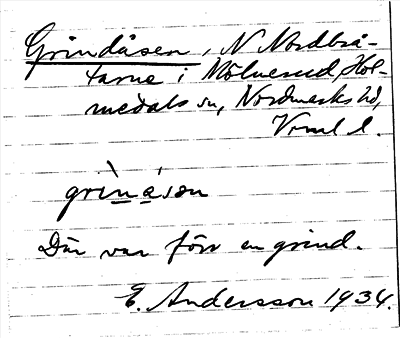 Grindåsen, N Nordbrå-
tarne i Mölnerud, Hol-
medals sn, Nordmarks hd,
Vrml l.
grìnásen
Där var förr en grind.
E. Andersson 1934.